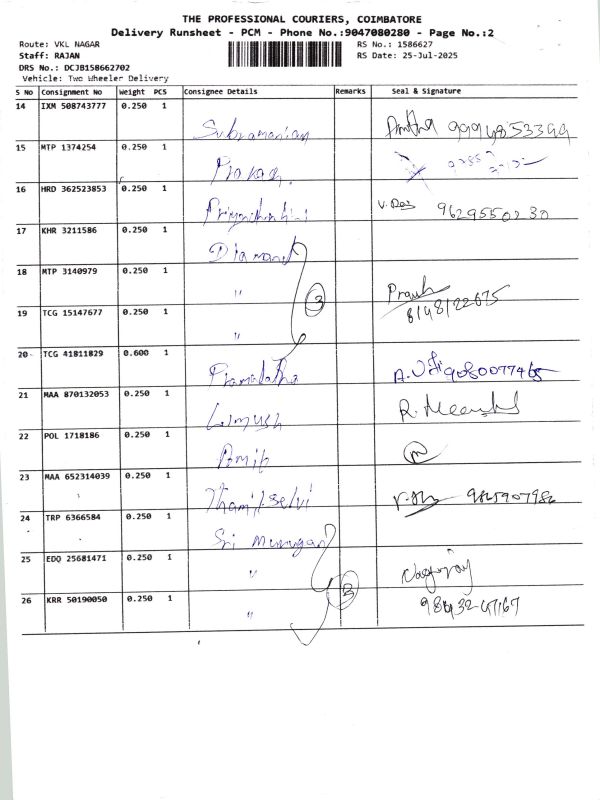 THE PROFESSIONAL COURIERS, COIMBATORE
Delivery Runsheet - PCM - Phone No.:9047080280 - Page No.:2
Route: VKL NAGAR RS No.: 1586627
Staff: RAJAN RS Date: 25-Jul-2025
DRS No.: DCJB158662702
Vehicle: Two Wheeler Delivery
S No Consignment No Weight PCS Consignee Details Remarks Seal & Signature
14 IXM 508743777 0.250 1
Subramanian
15 MTP 1374254 0.250 1
Prakash
16 HRD 362523853 0.250 1
V. 9629550230
17 KHR 3211586 0.250 1
Diamond
18 MTP 3140979 0.250 1
" 3
8148122675
19 TCG 15147677 0.250 1
"
20 TCG 41811829 0.600 1
Pramalatha 9080077465
21 MAA 870132053 0.250 1
R.
22 POL 1718186 0.250 1
Amit
23 MAA 652314039 0.250 1
Thamilselvi
24 TRP 6366584 0.250 1
Sri Murugan
25 EDQ 25681471 0.250 1
"
26 KRR 50190050 0.250 1 3
"